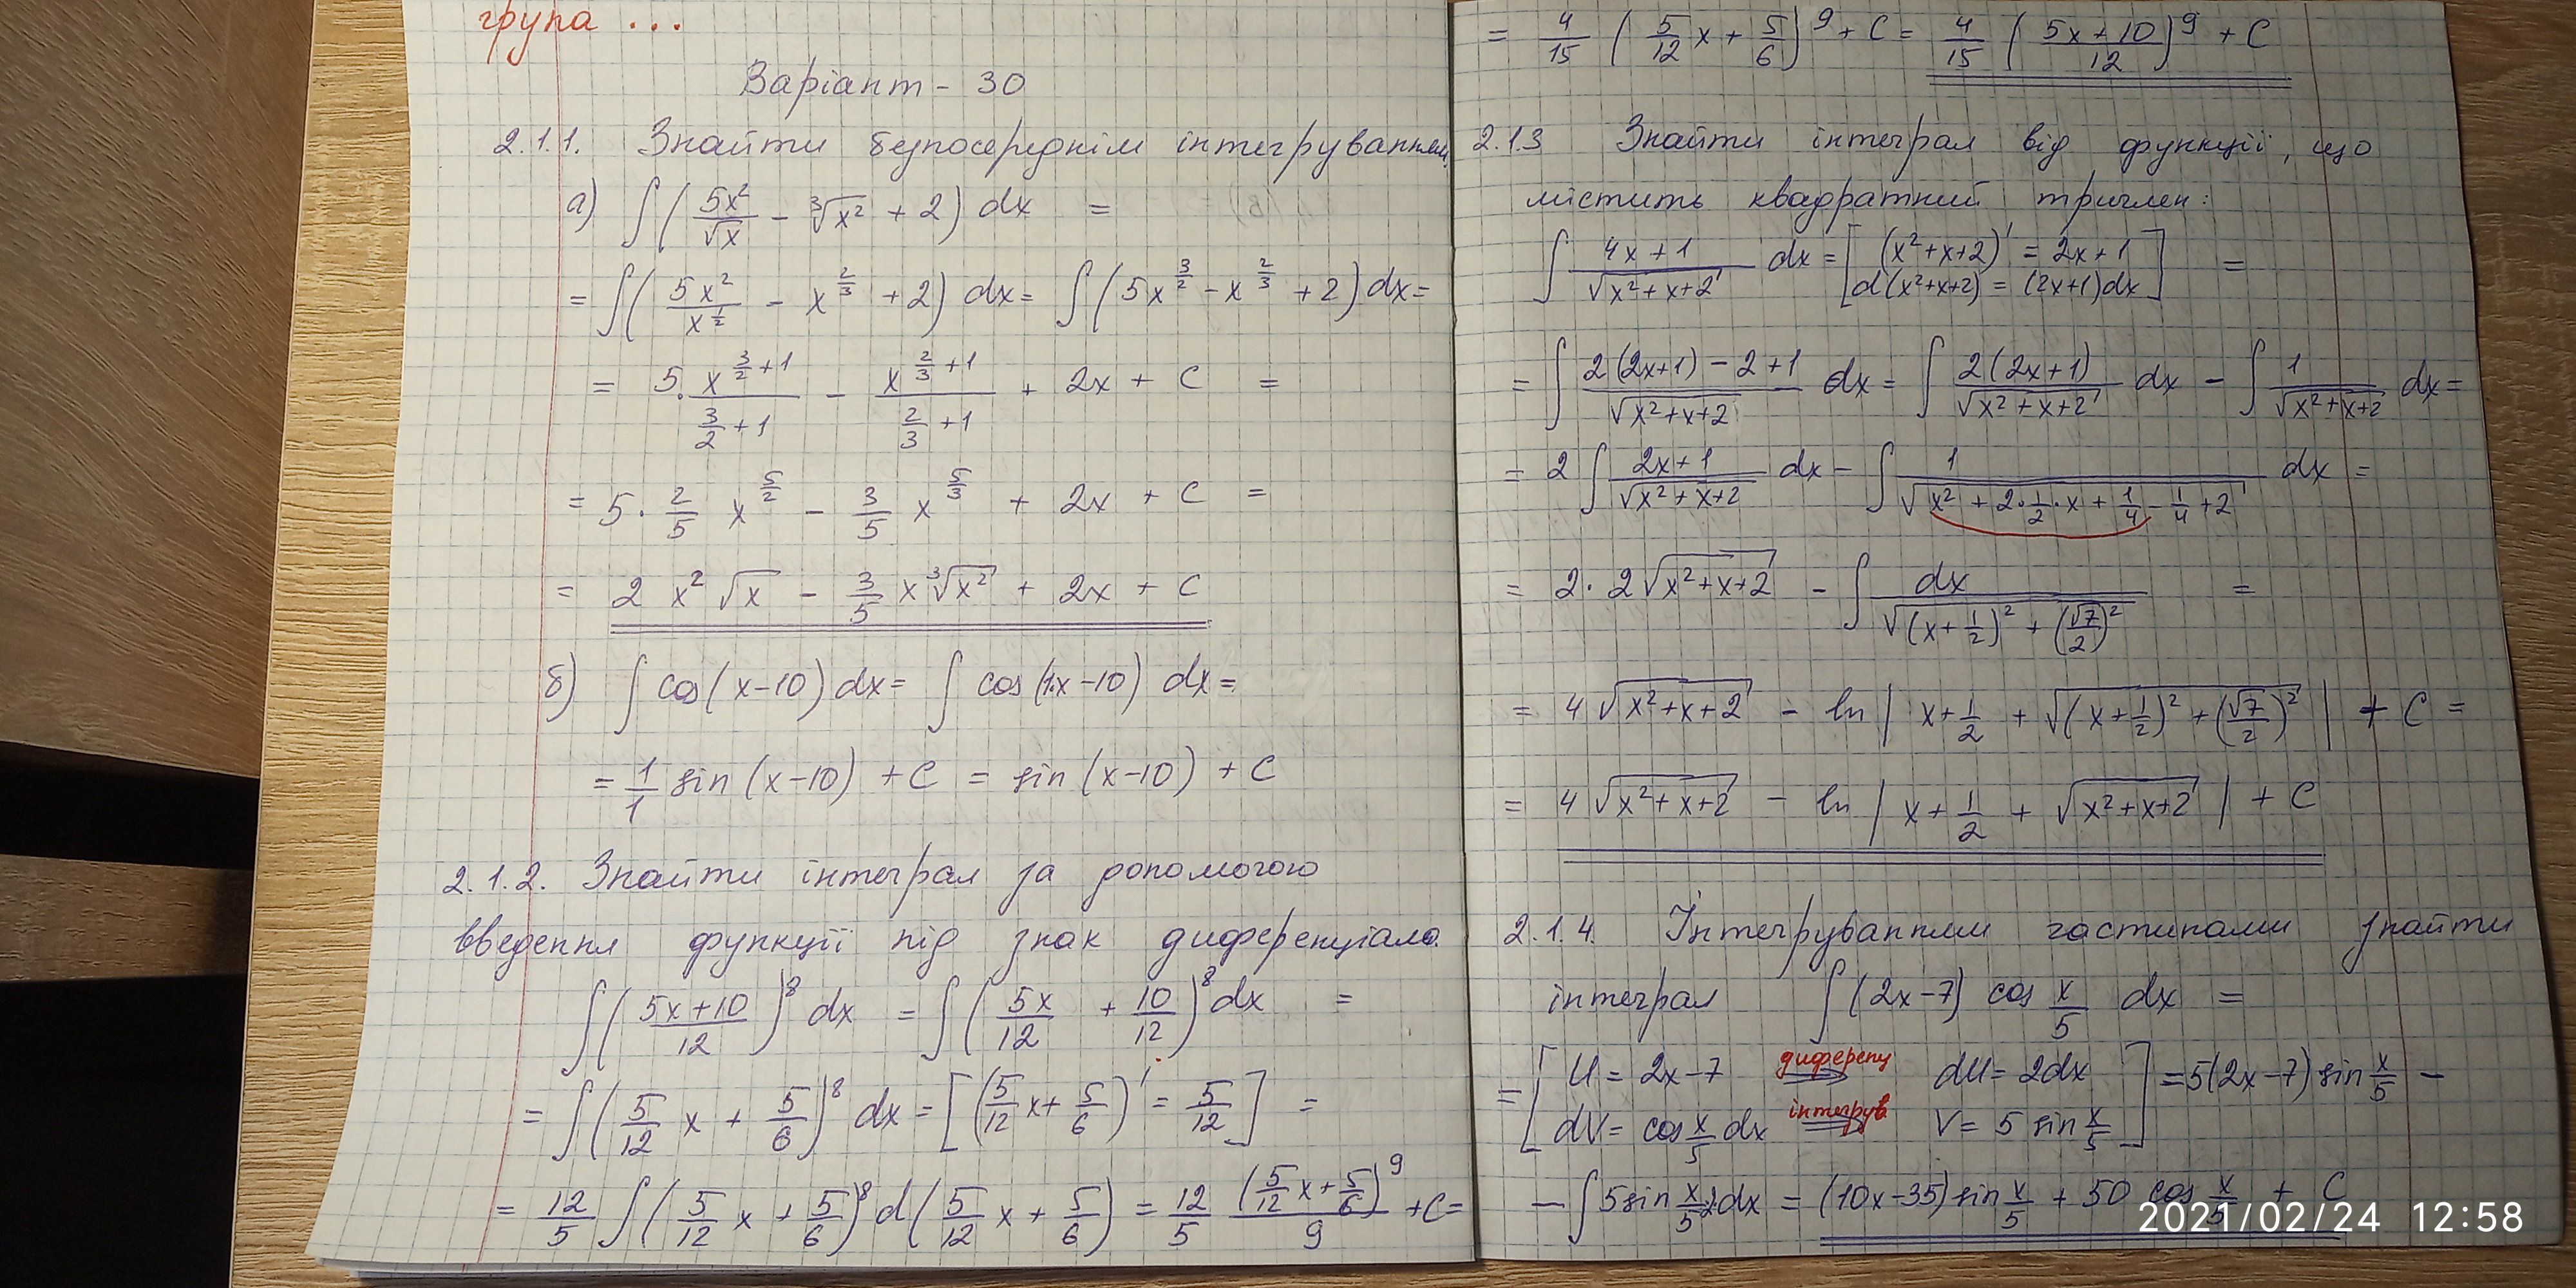 група ...
Варіант - 30
2.1.1. Знайти безпосереднім інтегруванням
а) ∫(5x²/√x - ³√x² + 2) dx =
= ∫(5x²/x^(1/2) - x^(2/3) + 2) dx = ∫(5x^(3/2) - x^(2/3) + 2) dx =
= 5·x^(3/2+1)/(3/2+1) - x^(2/3+1)/(2/3+1) + 2x + C =
= 5·2/5 x^(5/2) - 3/5 x^(5/3) + 2x + C =
= 2x²√x - 3/5 x ³√x² + 2x + C
б) ∫cos(x-10) dx = ∫cos(1·x-10) dx =
= 1/1 sin(x-10) + C = sin(x-10) + C
2.1.2. Знайти інтеграл за допомогою
введення функції під знак диференціала.
∫((5x+10)/12)⁸ dx = ∫(5x/12 + 10/12)⁸ dx =
= ∫(5/12 x + 5/6)⁸ dx = [(5/12 x + 5/6)' = 5/12] =
= 12/5 ∫(5/12 x + 5/6)⁸ d(5/12 x + 5/6) = 12/5 (5/12 x + 5/6)⁹/9 + C =
= 4/15 (5/12 x + 5/6)⁹ + C = 4/15 ((5x+10)/12)⁹ + C
2.1.3 Знайти інтеграл від функції, що
містить квадратний тричлен:
∫(4x+1)/√(x²+x+2) dx = [(x²+x+2)' = 2x+1
d(x²+x+2) = (2x+1)dx] =
= ∫(2(2x+1)-2+1)/√(x²+x+2) dx = ∫2(2x+1)/√(x²+x+2) dx - ∫1/√(x²+x+2) dx =
= 2∫(2x+1)/√(x²+x+2) dx - ∫1/√(x²+2·1/2·x+1/4-1/4+2) dx =
= 2·2√(x²+x+2) - ∫dx/√((x+1/2)²+(√7/2)²) =
= 4√(x²+x+2) - ln|x+1/2+√((x+1/2)²+(√7/2)²)| + C =
= 4√(x²+x+2) - ln|x+1/2+√(x²+x+2)| + C
2.1.4. Інтегруванням частинами знайти
інтеграл ∫(2x-7) cos x/5 dx =
= [U = 2x-7 диференц ⇒ dU = 2dx
dV = cos x/5 dx інтегрув. ⇒ V = 5 sin x/5] = 5(2x-7) sin x/5 -
- ∫5 sin x/5 · 2dx = (10x-35) sin x/5 + 50 cos x/5 + C
2021/02/24 12:58